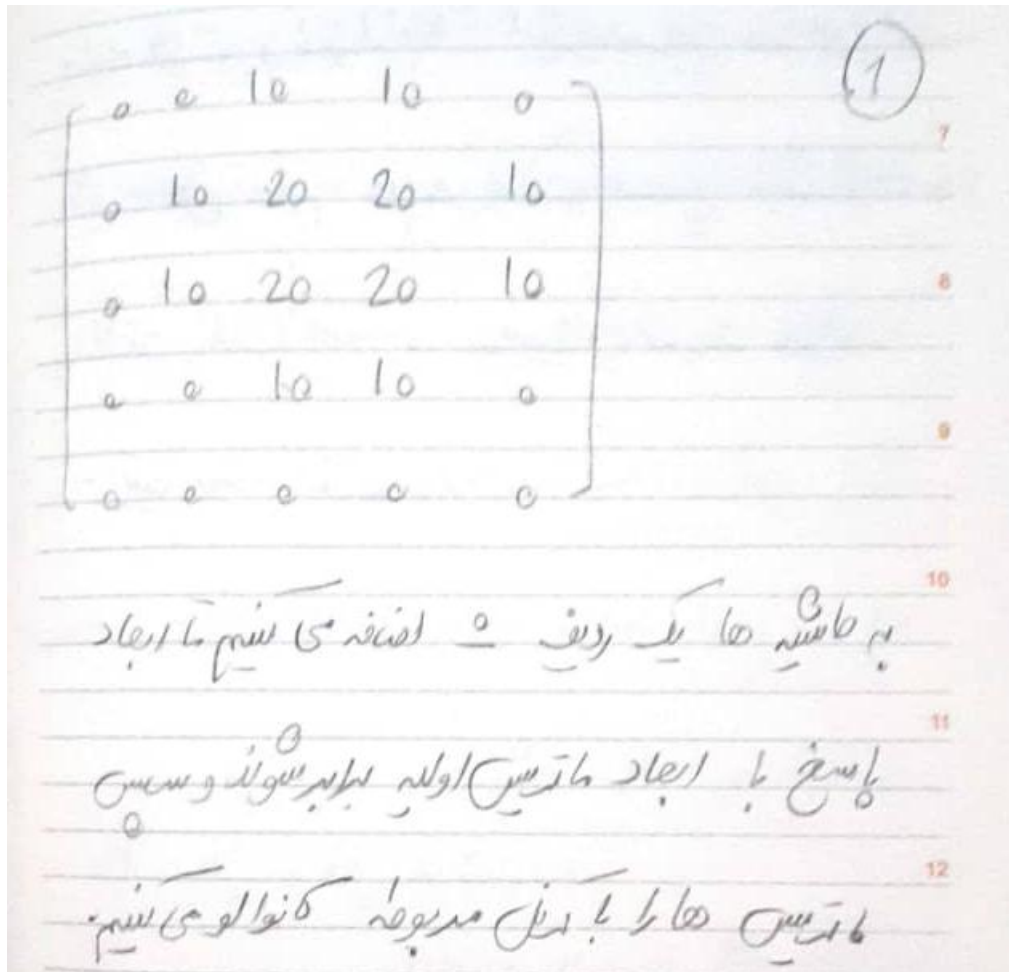 1
0 0 10 10 0
7
0 10 20 20 10
0 10 20 20 10
8
0 0 10 10 0
9
0 0 0 0 0
10
به حاشیه ها یک ردیف 0 اضافه می کنیم تا ابعاد
11
پاسخ با ابعاد ماتریس اولیه برابر شوند و سپس
12
ماتریس ها را با کرنل مربوطه کانوالو می کنیم.